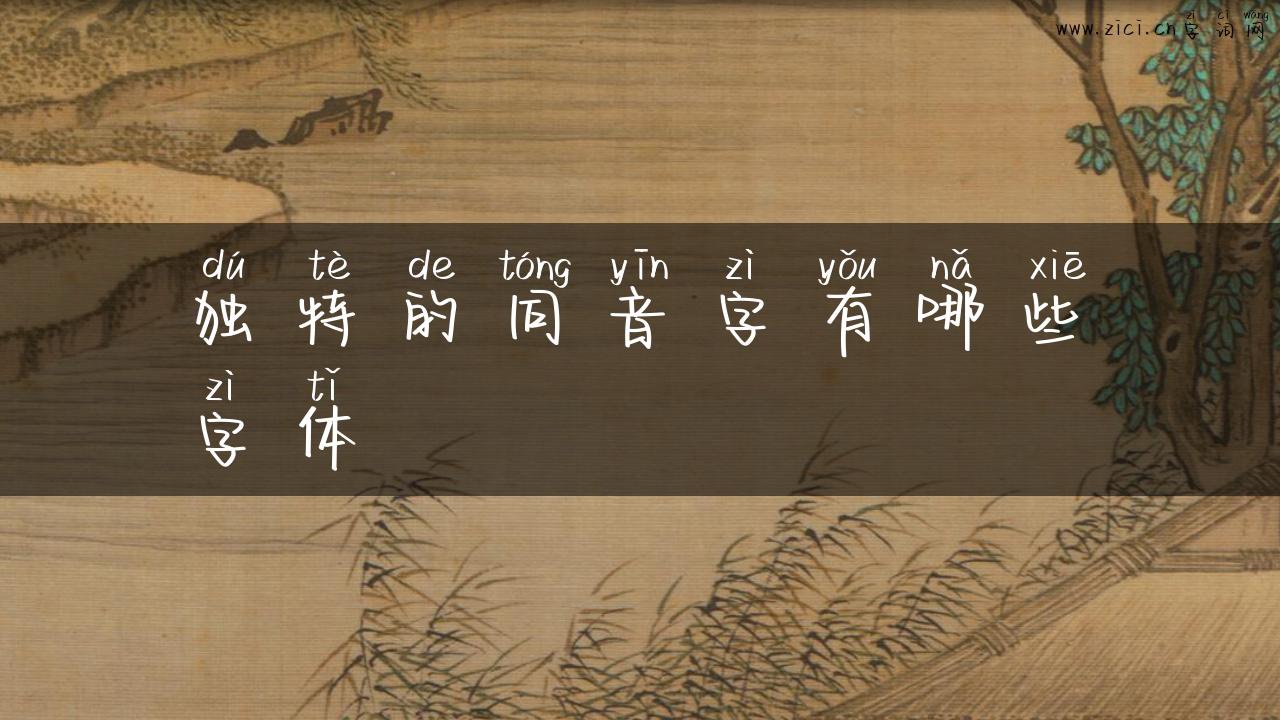 zì cí wǎng
www.zici.cn字词网
dú tè de tóng yīn zì yǒu nǎ xiē
独特的同音字有哪些
zì tǐ
字体